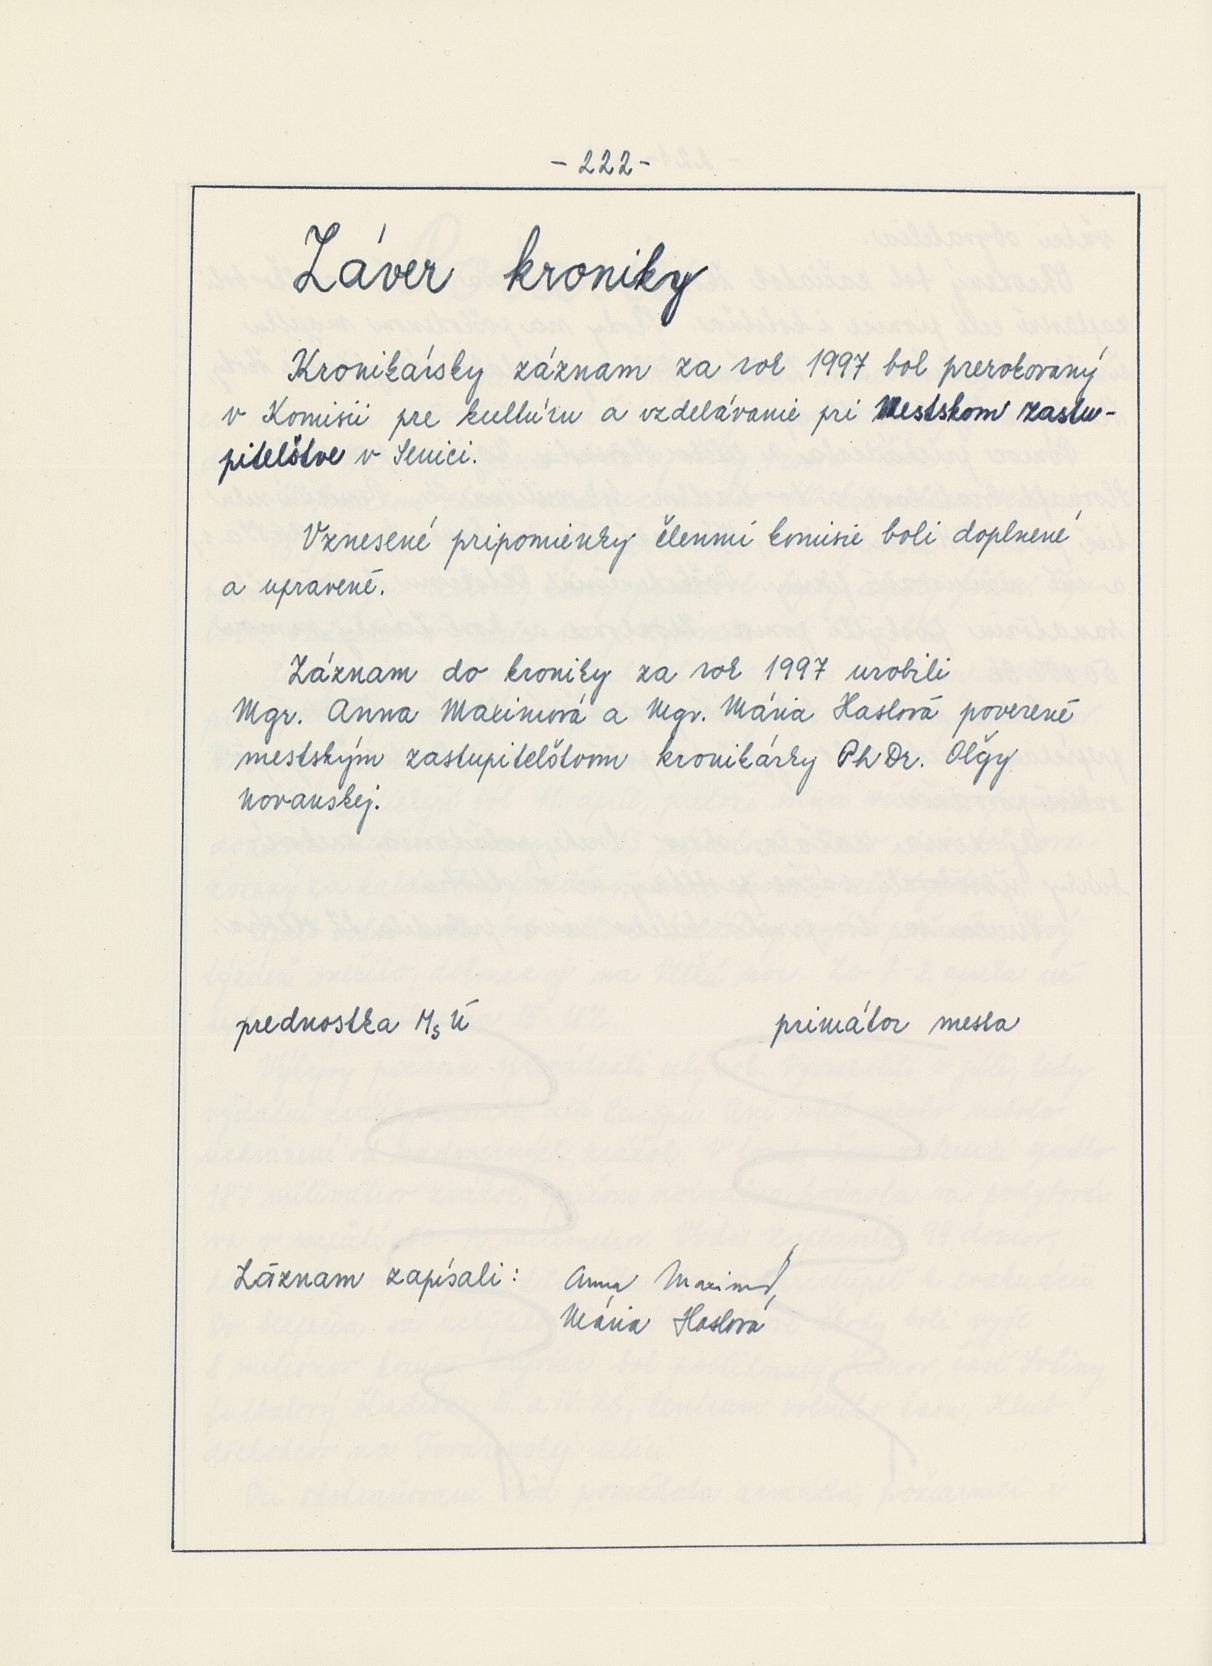 - 222 -
Záver kroniky
Kronikársky záznam za rok 1997 bol prerokovaný
v Komisii pre kultúru a vzdelávanie pri Mestskom zastu-
piteľstve v Senici.
Vznesené pripomienky členmi komisie boli doplnené
a upravené.
Záznam do kroniky za rok 1997 urobili
Mgr. Anna Maximová a Mgr. Mária Haslová poverené
mestským zastupiteľstvom kronikárky PhDr. Oľgy
Novanskej.
prednostka MsÚ
primátor mesta
Záznam zapísali: Anna
Mária Haslová